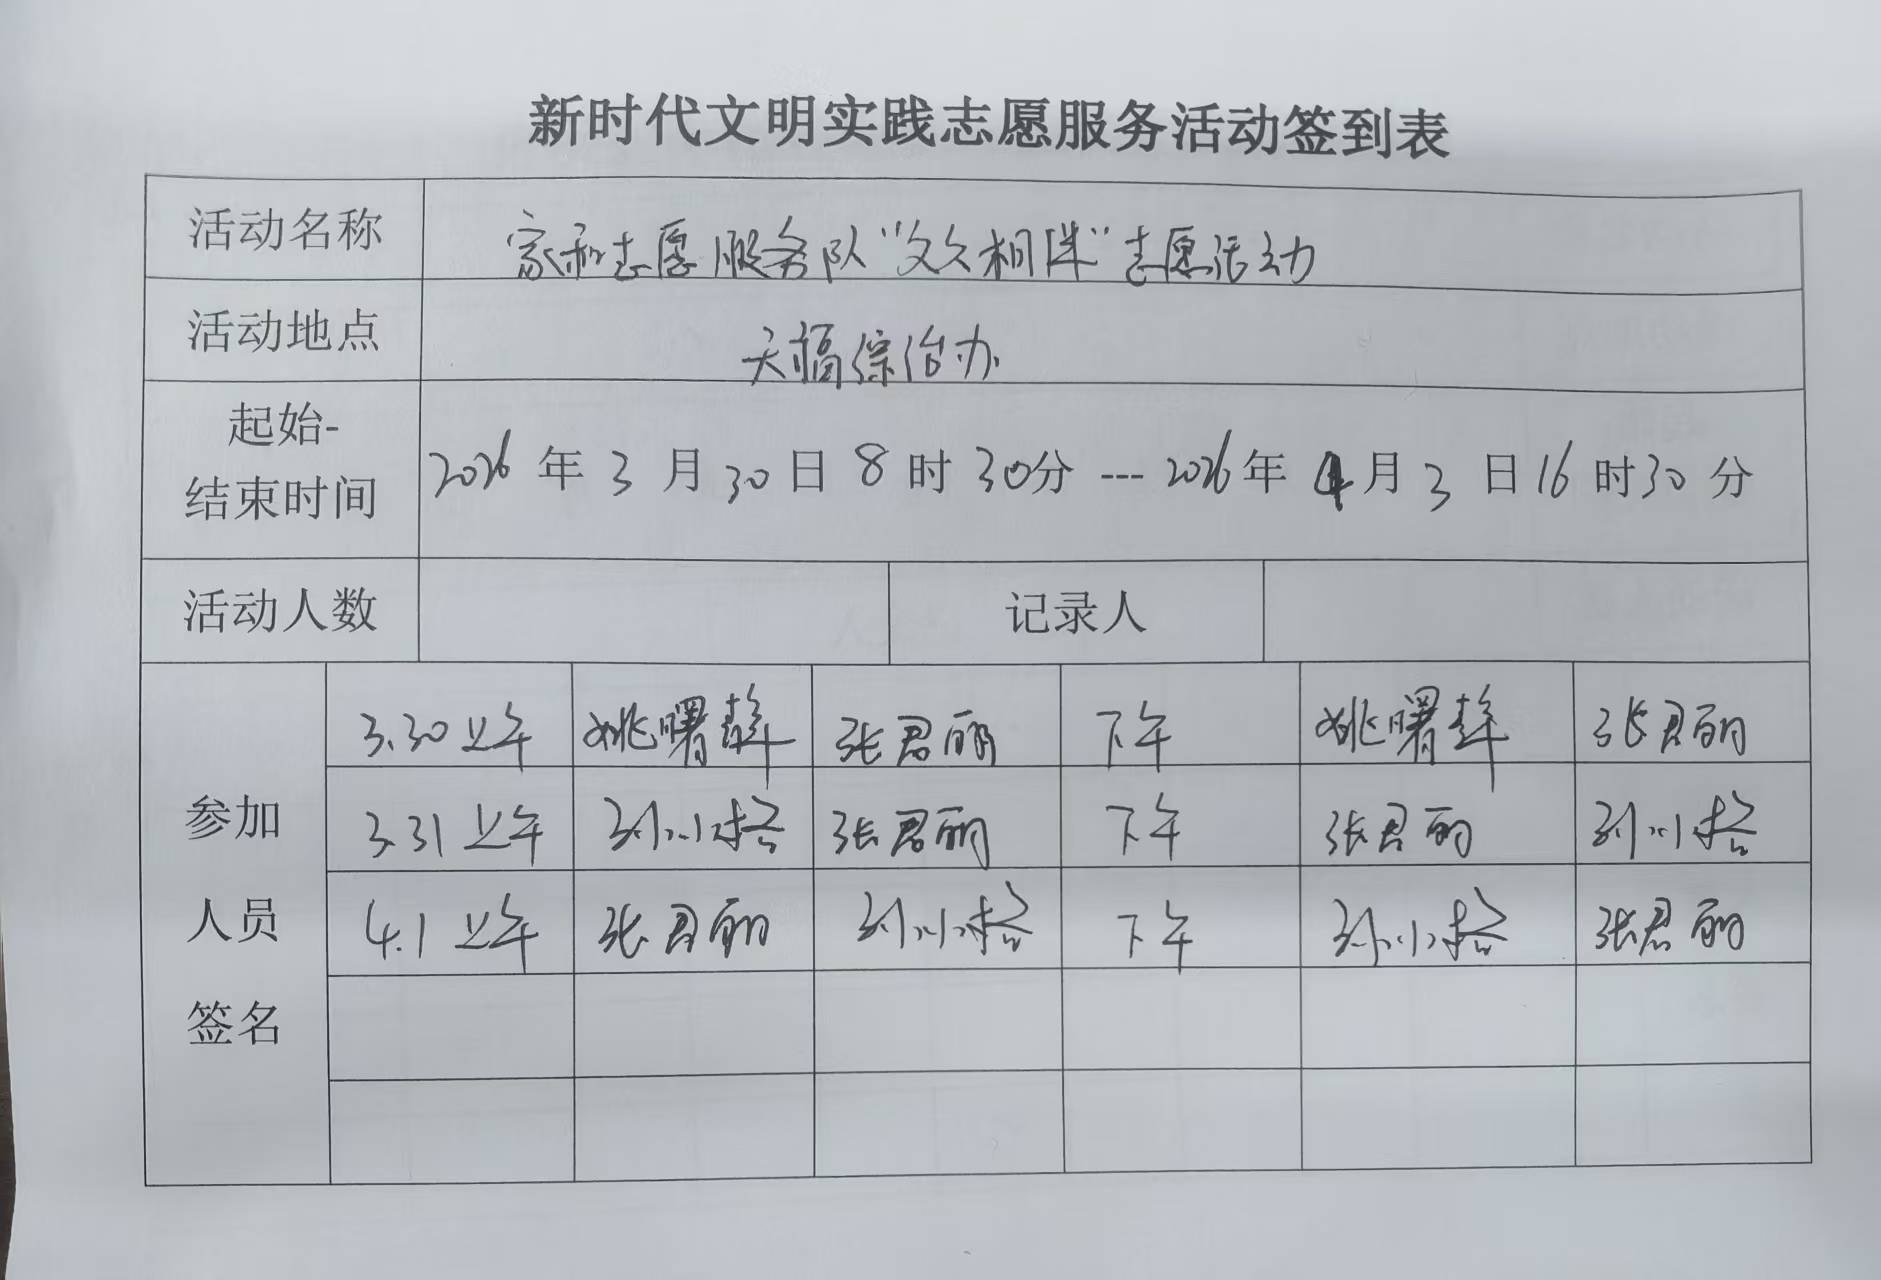 新时代文明实践志愿服务活动签到表
活动名称 家和志愿服务队“文久相伴”志愿活动
活动地点 天福综治办
起始-
结束时间 2026年3月30日8时30分---2026年4月3日16时30分
活动人数 记录人
参加
人员
签名
3.30上午 姚曙 张君丽 下午 姚曙 张君丽
3.31上午 张君丽 下午 张君丽
4.1上午 张君丽 下午 张君丽